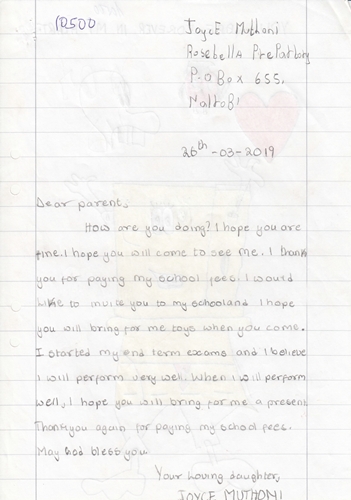 IR500
Joyce Muthoni
Rosebella Preparbory
P.O Box 655,
Nairobi
26th -03-2019
Dear parent,
How are you doing? I hope you are
fine. I hope you will come to see me. I thank
you for paying my school fees. I would
like to invite you to my school and I hope
you will bring for me toys when you come.
I started my end term exams and I believe
I will perform very well. When I will perform
well, I hope you will bring for me a present.
Thank you again for paying my school fees.
May God bless you.
Your loving daughter,
JOYCE MUTHONI